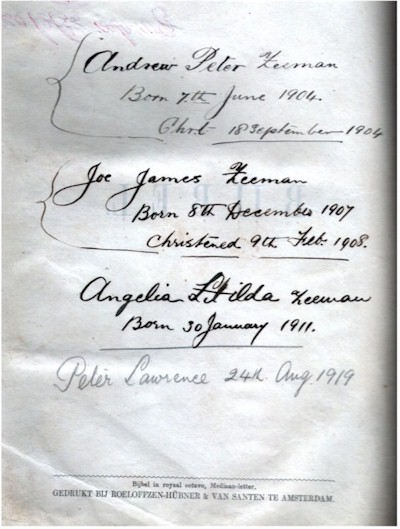 Andrew Peter Zeeman
Born 7th June 1904.
Chrt 18 September 1904
Joe James Zeeman
Born 8th December 1907
Christened 9th Feb. 1908.
Angelia Zeeman
Born 30 January 1911.
Peter Lawrence 24th Aug. 1919
Bijbel in royaal octavo, Mediaan-letter.
GEDRUKT BIJ ROELOFFZEN-HÜBNER & VAN SANTEN TE AMSTERDAM.